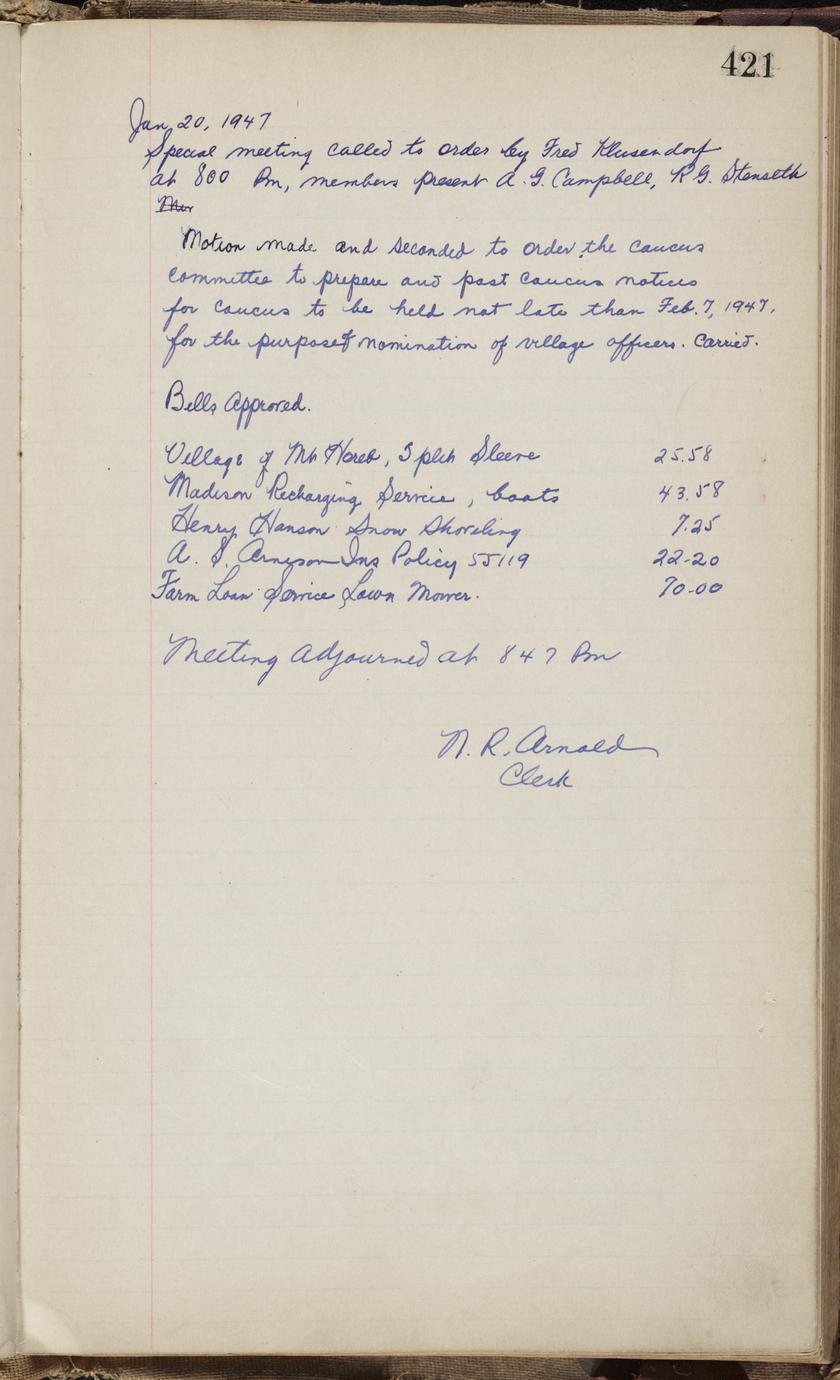 421
Jan, 20, 1947
Special meeting called to order by Fred Klusendorf
at 800 Pm, members present A. G. Campbell, R G. Stenseth
Motion made and seconded to order, the caucus
committee to prepare and post caucus notices
for caucus to be held not late than Feb. 7, 1947,
for the purpose of nomination of village officers. Carried.
Bills Approved.
Village of Mt Horeb, Split Sleeve 25.58
Madison Recharging Service, boats 43.58
Henry Hanson Snow Shoveling 7.25
A. S. Arneson Ins Policy 55119 22-20
Farm Loan Service Lawn Mower. 70-00
Meeting Adjourned at 847 Pm
N. R. Arnold
Clerk